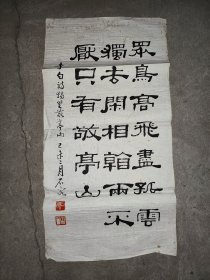 眾鳥高飛盡孤雲
獨去閑相看兩不
厭只有敬亭山
李白詩獨坐敬亭山 二月